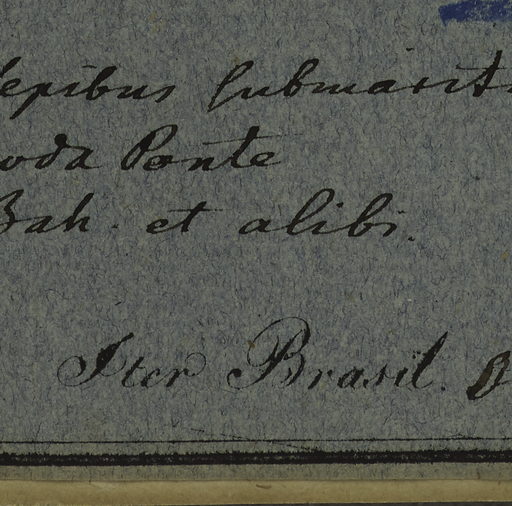 sepibus submarit
oda Ponte
Bah. et alibi.
Iter Brasil.